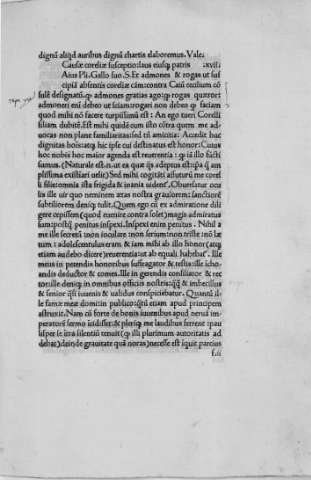 dignū aliqd auribus dignū chartis elaboremus. Vale.
Causæ coreliæ susceptio: laus eiusq; patris .xvii.
Aius Pli. Gallo suo. S. Et admones & rogas ut sus
cipiā absentis coreliæ cām: contra Caiū cecilium cō
sulē designatū. q. admones gratias ago: q. rogas quæror:
admoneri eni debeo ut sciam: rogari non debeo q. faciam
quod mihi nō facere turpissimū est: An ego tueri Corelli
filiam dubitē. Est mihi quidē cum isto cōtra quem me ad-
uocas non plane familiaritas: sed tn amicitia: Accedit huc
dignitas hois: atq; hic ipse cui destinatus est honor: Cuius
hoc nobis hoc maior agenda est reuerentia: q. iā illo facti
sumus. (Naturale est. n. ut ea quæ qs adeptus est: q. am
plissima existiari uelit) Sed mihi cogitāti affuturū me corel
li filiæ: omnia ista frigida & inania uident. Obuersatur ocu
lis ille uir quo neminem ætas nostra grauiorem: sanctiorē
subtiliorem deniq; tulit. Quem ego cū ex admiratione dili
gere cepissem (quod euenire contra solet) magis admiratus
sum: postq penitus inspexi. Inspexi enim penitus. Nihil a
me ille secretū: non ioculare: non serium: non triste: nō læ
tum: adolescentulus eram & iam mihi ab illo honor (atq;
etiam audebo dicere) reuerentia: ut ab equali habebat. Ille
meus in petendis honoribus suffragator & testis: ille icho-
andis deductor & comes. Ille in gerendis consiliator & rec
tor: ille deniq; in omnibus officiis nostris: qq & imbecillus
& senior qsi iuuenis & ualidus conspiciebatur. Quantū il-
le famæ meæ domi: in publico: qtū etiam apud principem
astruxit. Nam cū forte de bonis iuuenibus apud neruā im
peratorē sermo icidisset: & pleriq; me laudibus ferrent: pau
lisper se itra silentiū tenuit (q. illi plurimum autoritatis ad
debat) deinde grauitate quā noras) necesse est iquit parcius
f.ii